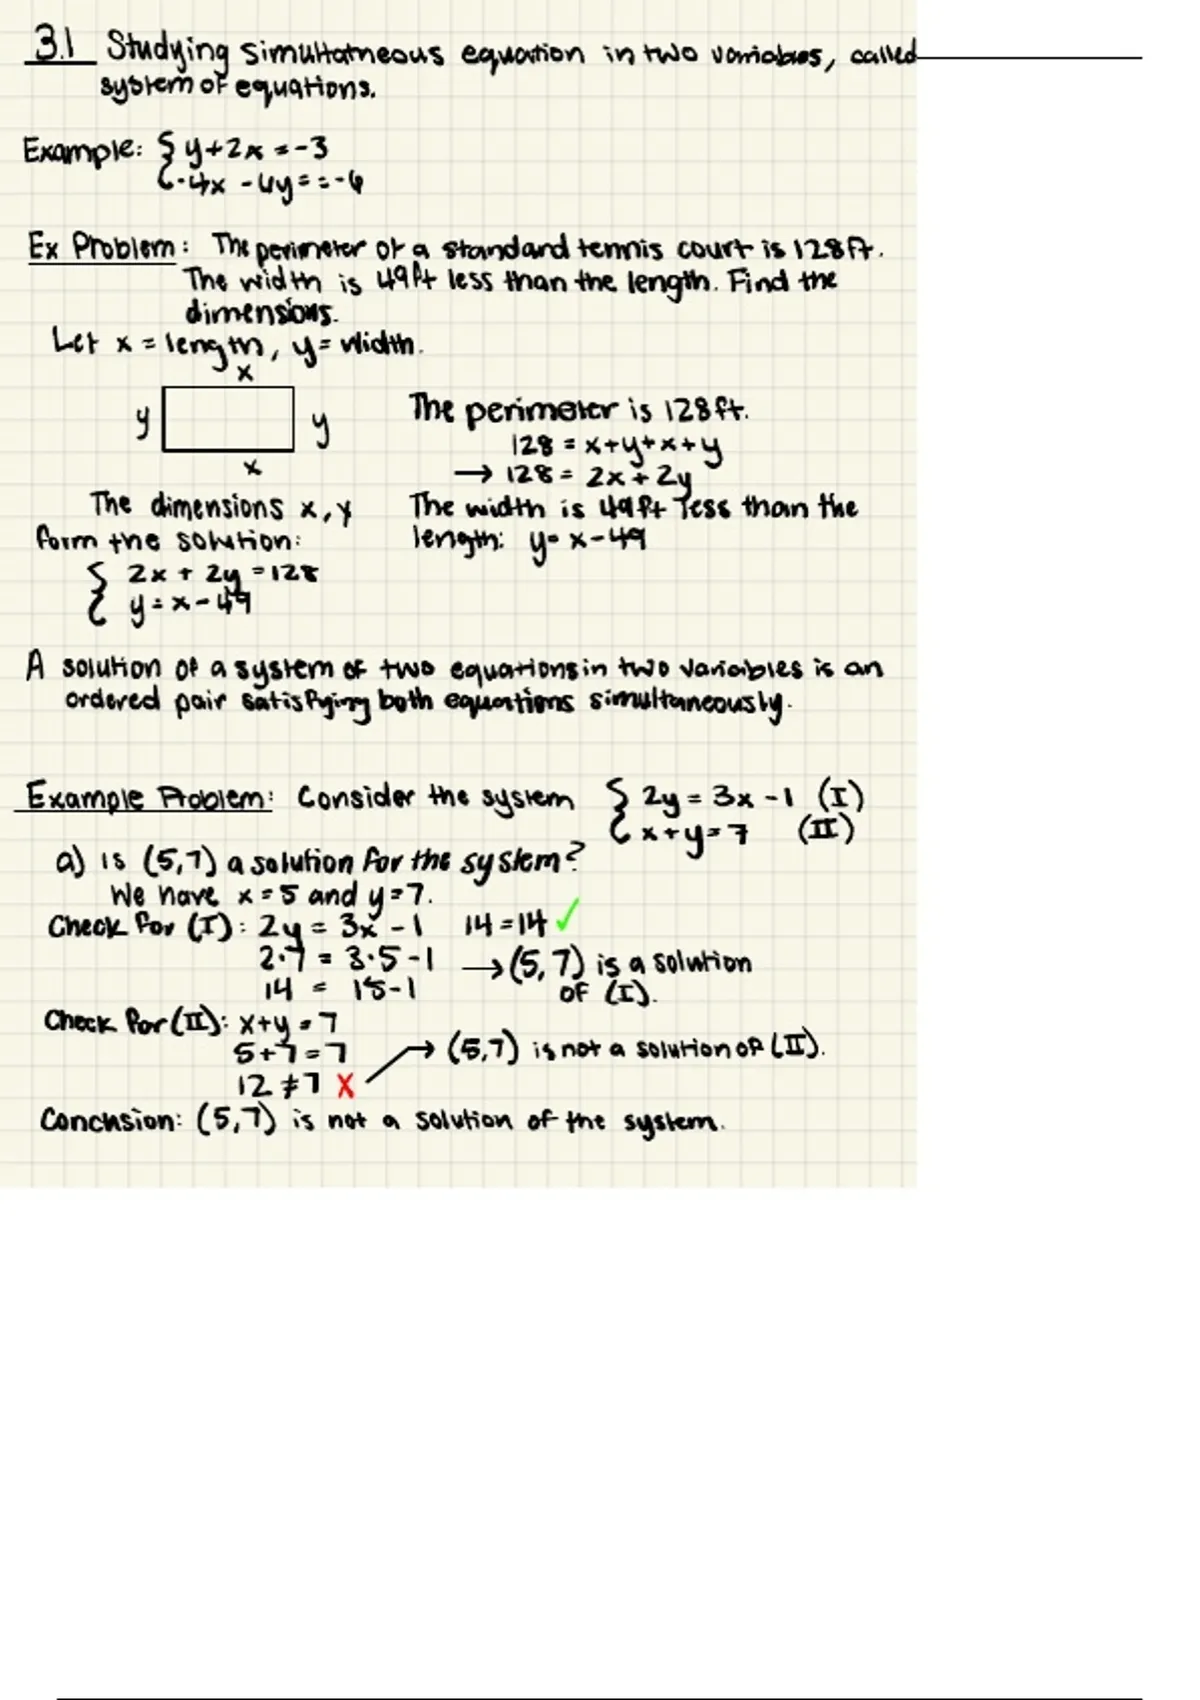 3.1 Studying simultatneous equation in two variables, called
system of equations.
Example: { y+2x = -3
-4x - 4y = = -6
Ex Problem: The perimeter of a standard tennis court is 128ft.
The width is 49ft less than the length. Find the
dimensions.
Let x = length, y = width.
x
y y
x
The perimeter is 128ft.
128 = x+y+x+y
→ 128 = 2x + 2y
The width is 49ft less than the
length: y = x-49
The dimensions x, y
form the solution:
{ 2x + 2y = 128
y = x - 49
A solution of a system of two equations in two variables is an
ordered pair satisfying both equations simultaneously.
Example Problem: Consider the system { 2y = 3x - 1 (I)
x + y = 7 (II)
a) is (5,7) a solution for the system?
We have x = 5 and y = 7.
Check for (I): 2y = 3x - 1 14 = 14 ✓
2·7 = 3·5 - 1 → (5,7) is a solution
14 = 15-1 of (I).
Check for (II): x+y = 7
5+7 = 7 → (5,7) is not a solution of (II).
12 ≠ 7 X
Conclusion: (5,7) is not a solution of the system.